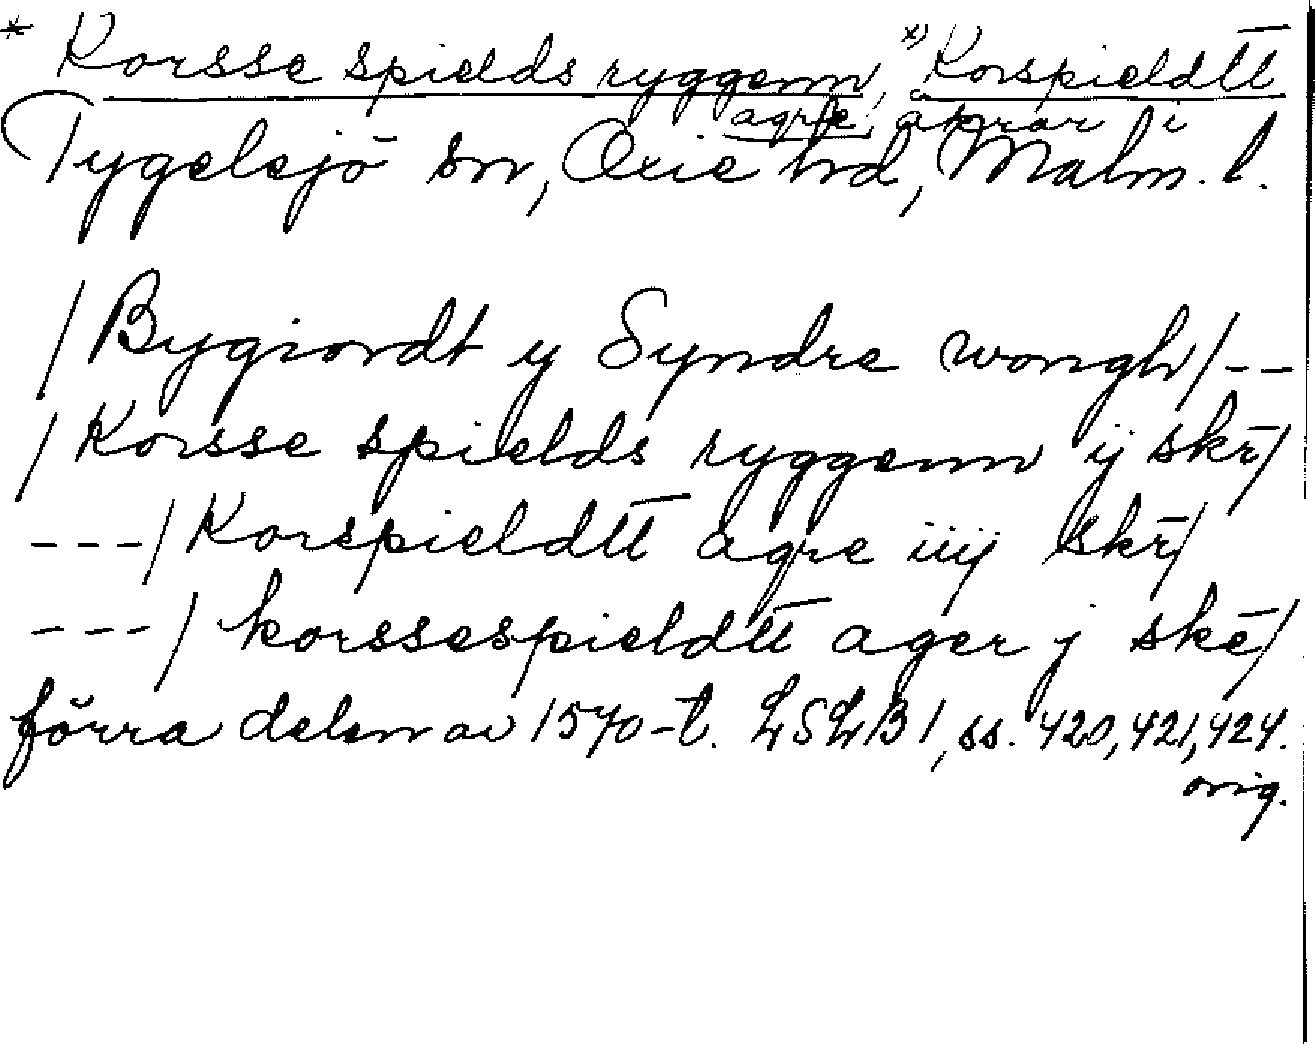 * Korsse spields ryggenn, *) Korspieldtt
agre, åkrar i
Tygelsjö sn, Oxie hd, Malm. l.
/Bygiordt y Syndre wongh/--
/Korsse spields ryggenn ij skr̄/
---/Korspieldtt agre iiij skr̄/
---/korssespieldtt ager j skē/
förra delen av 1570-t. LSLB1, ss. 420, 421, 424.
orig.